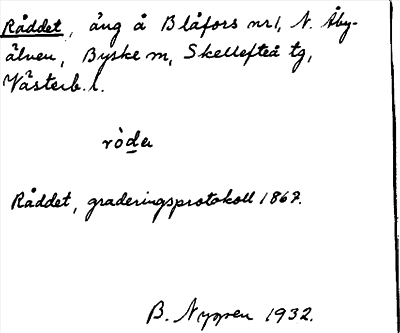 Råddet, äng å Blåfors nr 1, N. Åby-
älven, Byske m, Skellefteå tg,
Västerb. l.
ròda
Råddet, graderingsprotokoll 1867.
B. Nygren 1932.